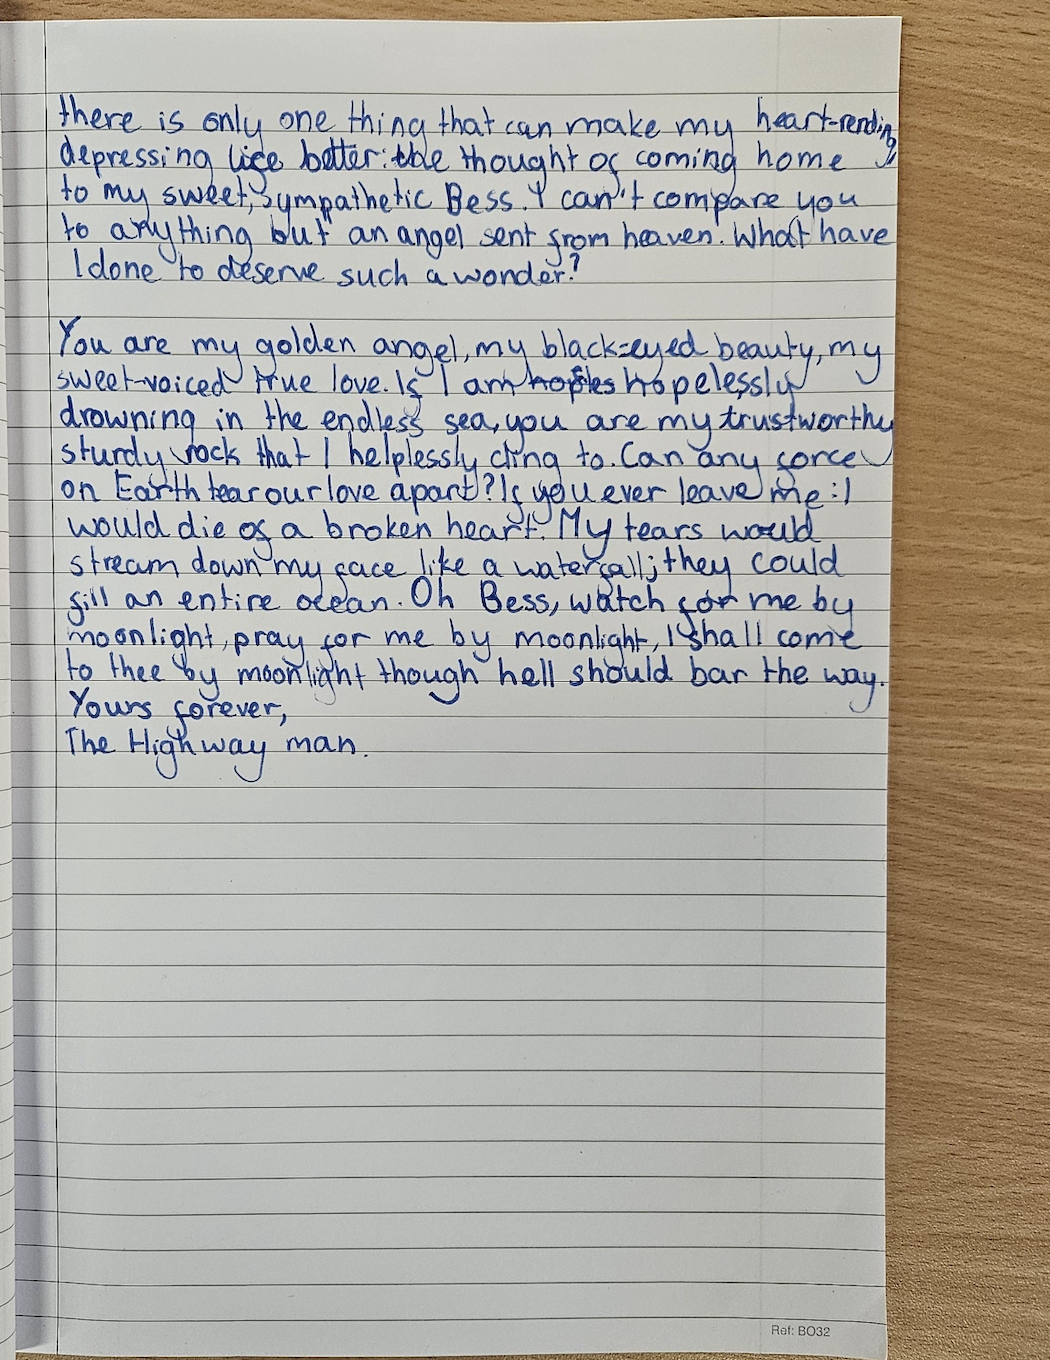 there is only one thing that can make my heart-rending
depressing life better: the thought of coming home
to my sweet, sympathetic Bess. I can't compare you
to anything but an angel sent from heaven. What have
I done to deserve such a wonder?
You are my golden angel, my black-eyed beauty, my
sweet-voiced true love. If I am hopeless hopelessly
drowning in the endless sea, you are my trustworthy
sturdy rock that I helplessly cling to. Can any force
on Earth tear our love apart? If you ever leave me: I
would die of a broken heart. My tears would
stream down my face like a waterfall; they could
fill an entire ocean. Oh Bess, watch for me by
moonlight, pray for me by moonlight, I shall come
to thee by moonlight though hell should bar the way.
Yours forever,
The Highway man.
Ref: BO32